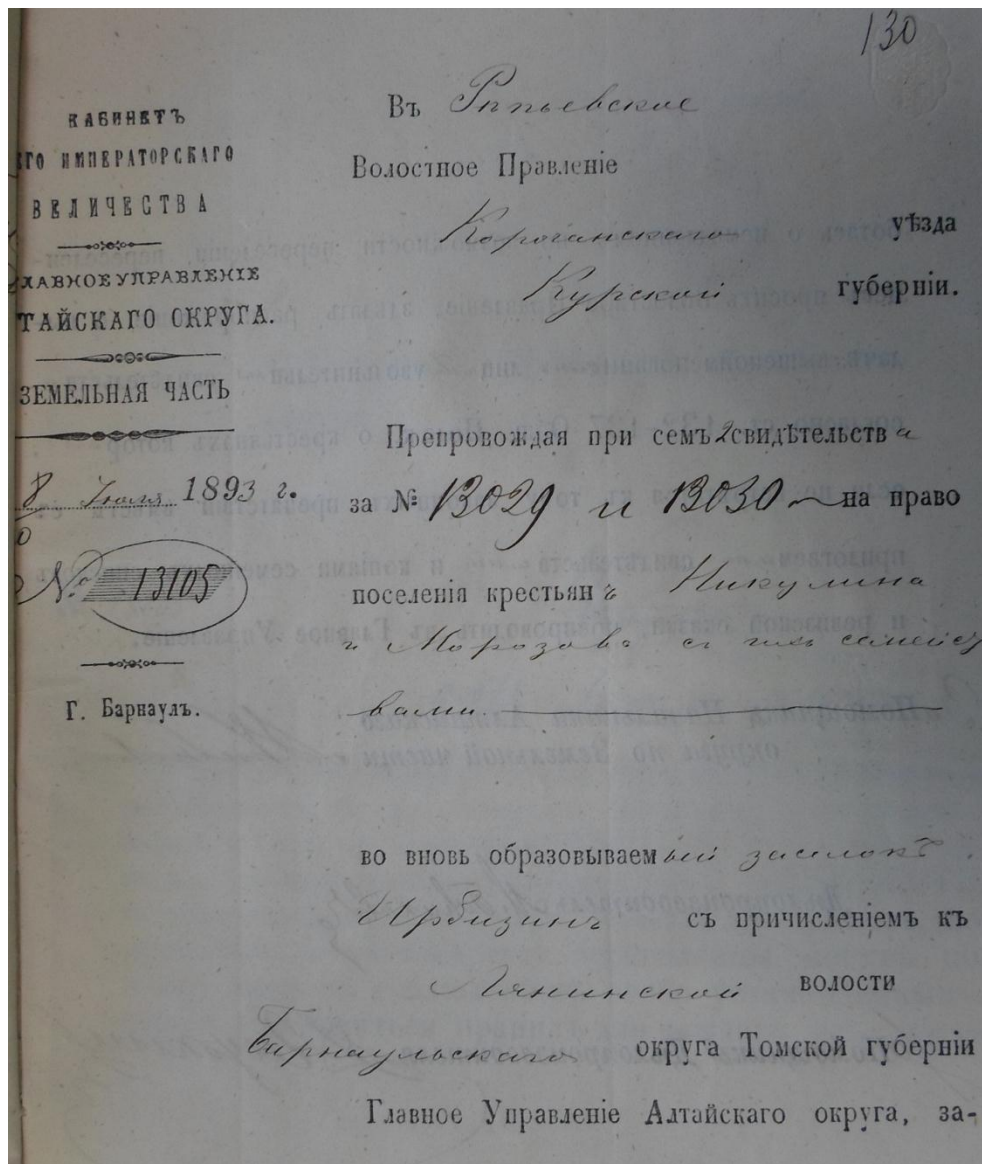 130
КАБИНЕТЪ
ЕГО ИМПЕРАТОРСКАГО
ВЕЛИЧЕСТВА
ЛАВНОЕ УПРАВЛЕНІЕ
ТАЙСКАГО ОКРУГА.
ЗЕМЕЛЬНАЯ ЧАСТЬ
8 Июля 1893 г.
№ 13105
Г. Барнаулъ.
Въ Рѣпьевское
Волостное Правленіе
Корочанскаго уѣзда
Курской губерніи.
Препровождая при семъ 2 свидѣтельства
за № 13029 и 13030 на право
поселенія крестьянъ Никулина
и Морозова съ ихъ семейст
вами
во вновь образовываемый заселокъ
Ирбизинъ съ причисленіемъ къ
Лянинской волости
Барнаульскаго округа Томской губерніи
Главное Управленіе Алтайскаго округа, за-